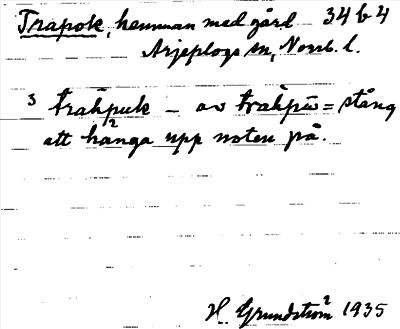 Trapok, hemman med gård 34 b 4
Arjeplogs sn, Norrb. l.
3 trahpuk – av trahpū = stång
att hänga upp noten på.
H. Grundström 1935